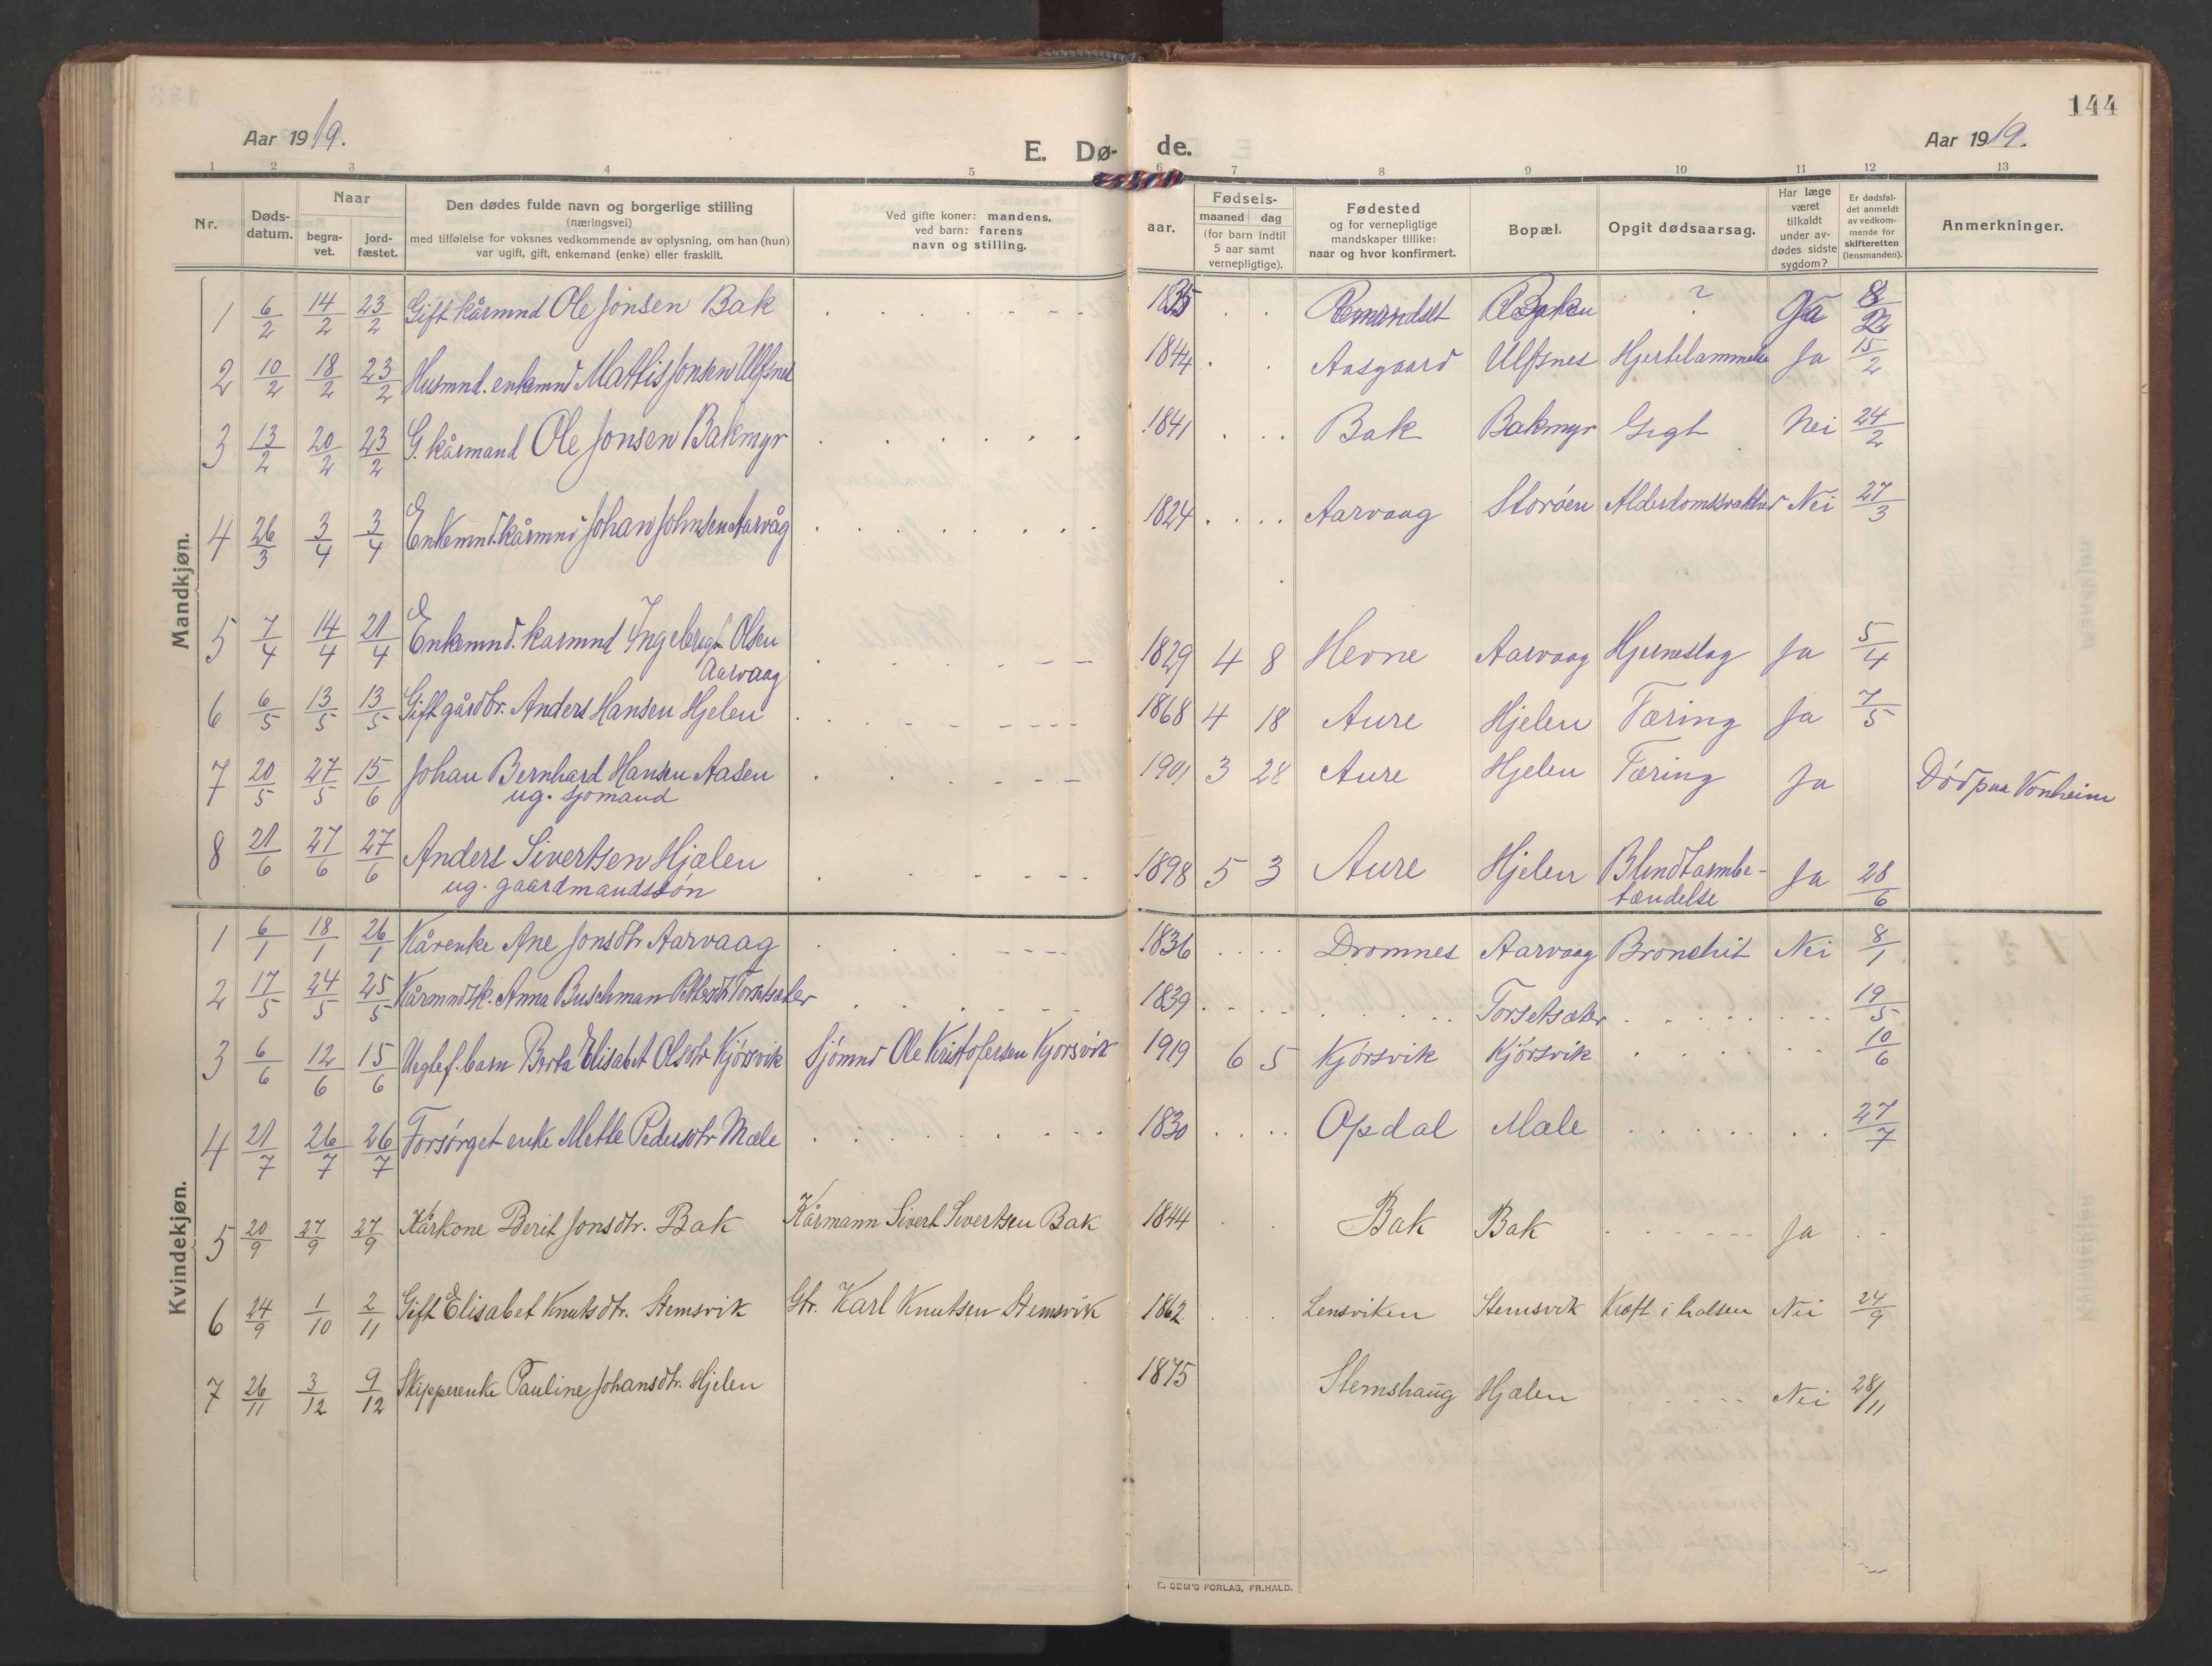 144
Aar 1919.
E. Dø- de.
Aar 1919.
1 2 3 4 5 6 7 8 9 10 11 12 13
Nr.
Døds-
datum.
Naar
begra-
vet.
jord-
fæstet.
Den dødes fulde navn og borgerlige stilling
(næringsvei)
med tilføielse for voksnes vedkommende av oplysning, om han (hun)
var ugift, gift, enkemand (enke) eller fraskilt.
Ved gifte koner: mandens,
ved barn: farens
navn og stilling.
aar.
Fødsels-
maaned dag
(for barn indtil
5 aar samt
vernepligtige).
Fødested
og for vernepligtige
mandskaper tillike:
naar og hvor konfirmert.
Bopæl.
Opgit dødsaarsag.
Har læge
været
tilkaldt
under av-
dødes sidste
sygdom?
Er dødsfal-
det anmeldt
av vedkom-
mende for
skifteretten
(lensmanden).
Anmerkninger.
Mandkjøn.
1 6/2 14/2 23/2 Gift kårmnd Ole Jonsen Bak 1835 ? Ja
2 10/2 18/2 23/2 Husmnd. enkemnd Mattis Jonsen Ulfsnes 1844 Aasgaard Ulfsnes Hjertelammelse Ja 15/2
3 13/2 20/2 23/2 G. kårmand Ole Jonsen Bakmyr 1841 Bak Bakmyr Gigt Nei 24/2
4 26/3 3/4 3/4 Enkemnd. kårmnd Johan Johnsen Aarvåg 1824 Aarvaag Storøen Alderdomssvakhed Nei 27/3
5 7/4 14/4 21/4 Enkemnd. karmnd Ingebrigt Olsen 1829 4 8 Hevne Aarvaag Hjerneslag Ja 5/4
Aarvaag
6 6/5 13/5 13/5 Gift gårdbr. Anders Hansen Hjelen 1868 4 18 Aure Hjelen Tæring Ja 7/5
7 20/5 27/5 15/6 Johan Bernhard Hansen Aasen 1901 3 28 Aure Hjelen Tæring Ja Død paa Vonheim
ug. sjømand
8 21/6 27/6 27/6 Anders Sivertsen Hjælen 1898 5 3 Aure Hjelen Blindtarmbe- Ja 28/6
ug. gaardmandssøn tændelse
Kvindekjøn.
1 6/1 18/1 26/1 Kårenke Ane Jonsdtr Aarvaag 1836 Dromnes Aarvaag Bronchit Nei 8/1
2 17/5 24/5 25/5 Kårmndsk. Anna Buschman Torsetsæter 1839 Torsetsæter 19/5
3 6/6 12/6 15/6 Uegtef. barn Berta Elisabet Olsdtr Kjørsvik Sjømnd Ole Kristofersen Kjørsvik 1919 6 5 Kjørsvik Kjørsvik 10/6
4 21/7 26/7 26/7 Forsørget enke Mette Pedersdtr Mæle 1830 Opdal Mæle 27/7
5 20/9 27/9 27/9 Kårkone Berit Jonsdtr. Bak Kårmann Sivert Sivertsen Bak 1844 Bak Bak Ja
6 24/9 1/10 2/11 Gift Elisabet Knutsdtr. Stemsvik Gbr. Karl Knutsen Stemsvik 1862 Lensviken Stemsvik Kræft i halsen Nei 24/9
7 26/11 3/12 9/12 Skipperenke Pauline Johansdtr. Hjelen 1875 Stemshaug Hjælen Nei 28/11
E. SEM'S FORLAG, FR.HALD.